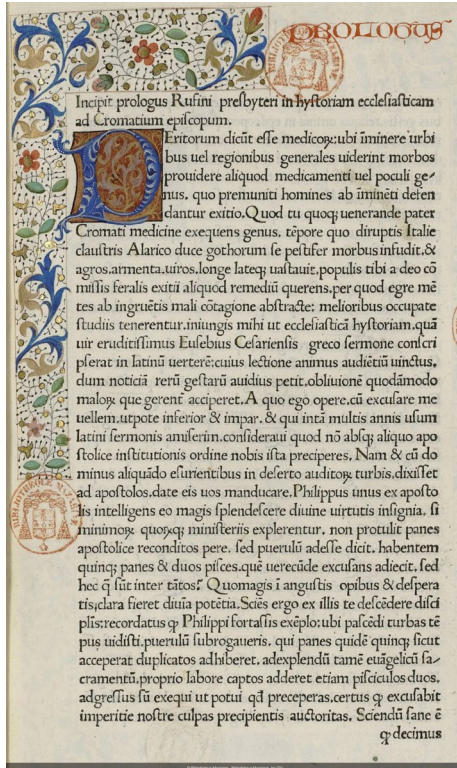 PROLOGUS
Incipit prologus Rufini presbyteri in hystoriam ecclesiasticam
ad Cromatium episcopum.
PEritorum dicūt esse medicoꝝ: ubi īminere urbi
bus uel regionibus generales uiderint morbos
prouidere aliquod medicamenti uel poculi ge⸗
nus, quo premuniti homines ab īminēti defen
dantur exitio. Quod tu quoqꝫ uenerande pater
Cromati medicine exequens genus, tēpore quo diruptis Italie
claustris Alarico duce gothorum se pestifer morbus infudit, &
agros, armenta, uiros, longe lateqꝫ uastauit, populis tibi a deo cō
missis feralis exitii aliquod remediū querens, per quod egre mē
tes ab ingruētis mali cōtagione abstracte: melioribus occupate
studiis tenerentur, iniungis mihi ut ecclesiasticā hystoriam, quā
uir eruditissimus Eusebius Cesariensis greco sermone conscri
pserat in latinū uerterē: cuius lectione animus audiētiū uinctus,
dum noticiā rerū gestarū auidius petit, obliuionē quodāmodo
maloꝝ que gerent̄ acciperet. A quo ego opere, cū excusare me
uellem, utpote inferior & impar, & qui intā multis annis usum
latini sermonis amiserim, consideraui quod nō absqꝫ aliquo apo
stolice institutionis ordine nobis ista preciperes, Nam & cū do
minus aliquādo esurientibus in deserto auditoꝝ turbis, dixisset
ad apostolos, date eis uos manducare, Philippus unus ex aposto
lis intelligens eo magis splendescere diuine uirtutis insignia, si
minimoꝝ quoꝝqꝫ ministeriis explerentur, non protulit panes
apostolice reconditos pere, sed puerulū adesse dicit, habentem
quinqꝫ panes & duos pisces, quē uerecūde excusans adiecit, sed
hec q̄ sūt inter tātos? Quomagis ī angustis opibus & despera
tis, clara fieret diuīa potētia. Sciēs ergo ex illis te descēdere disci
plīs: recordatus ꝙ Philippi fortassis exēplo: ubi pascēdi turbas tē
pus uidisti, puerulū subrogaueris, qui panes quidē quinqꝫ sicut
acceperat duplicatos adhiberet, adexplendū tamē euāgelicū sa⸗
cramentū, proprio labore captos adderet etiam pisciculos duos,
adgressus sū exequi ut potui qđ preceperas, certus ꝙ excusabit
imperitie nostre culpas precipientis auctoritas. Sciendū sane ē
ꝙ decimus